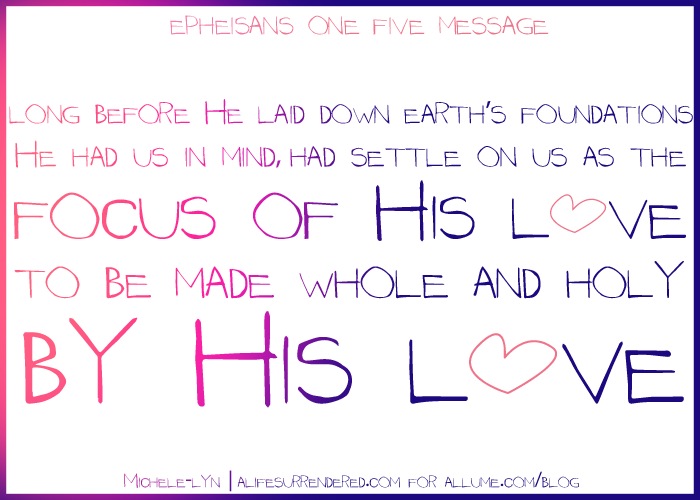 EPHEISANS ONE FIVE MESSAGE
LONG BEFORE HE LAID DOWN EARTH'S FOUNDATIONS
HE HAD US IN MIND, HAD SETTLE ON US AS THE
FOCUS OF HIS L♡VE
TO BE MADE WHOLE AND HOLY
BY HIS L♡VE
MICHELE-LYN | ALIFESURRENDERED.COM FOR ALLUME.COM/BLOG